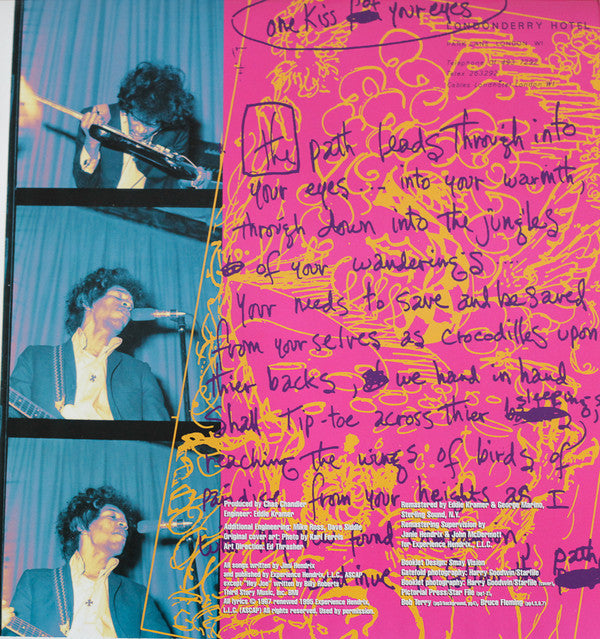 one kiss your eyes
LONDONDERRY HOTEL
PARK LANE, LONDON, W1
Telephone 01 493 7292
Telex 263292
Cables Londhotel London W1
the path leads through into
your eyes... into your warmth,
through down into the jungles
of your wandering's...
Your needs to save and be saved
from yourselves as crocodilles upon
thier backs, we hand in hand
shall tip-toe across thier sleepings,
reaching the wings of birds of
paridice from your heights as I
found
path
Produced by Chas Chandler
Engineer: Eddie Kramer
Additional Engineering: Mike Ross, Dave Siddle
Original cover art: Photo by Karl Ferris
Art Direction: Ed Thrasher
All songs written by Jimi Hendrix
and published by Experience Hendrix, L.L.C., ASCAP
except "Hey Joe" written by Billy Roberts
Third Story Music, Inc. BMI
All lyrics © 1967 renewed 1995 Experience Hendrix,
L.L.C. (ASCAP) All rights reserved. Used by permission.
Remastered by Eddie Kramer & George Marino,
Sterling Sound, N.Y.
Remastering Supervision by
Janie Hendrix & John McDermott
for Experience Hendrix, L.L.C.
Booklet Design: Smay Vision
Gatefold photography: Harry Goodwin/Starfile
Booklet photography: Harry Goodwin/Starfile
Pictorial Press/Star File
Bob Terry Bruce Fleming